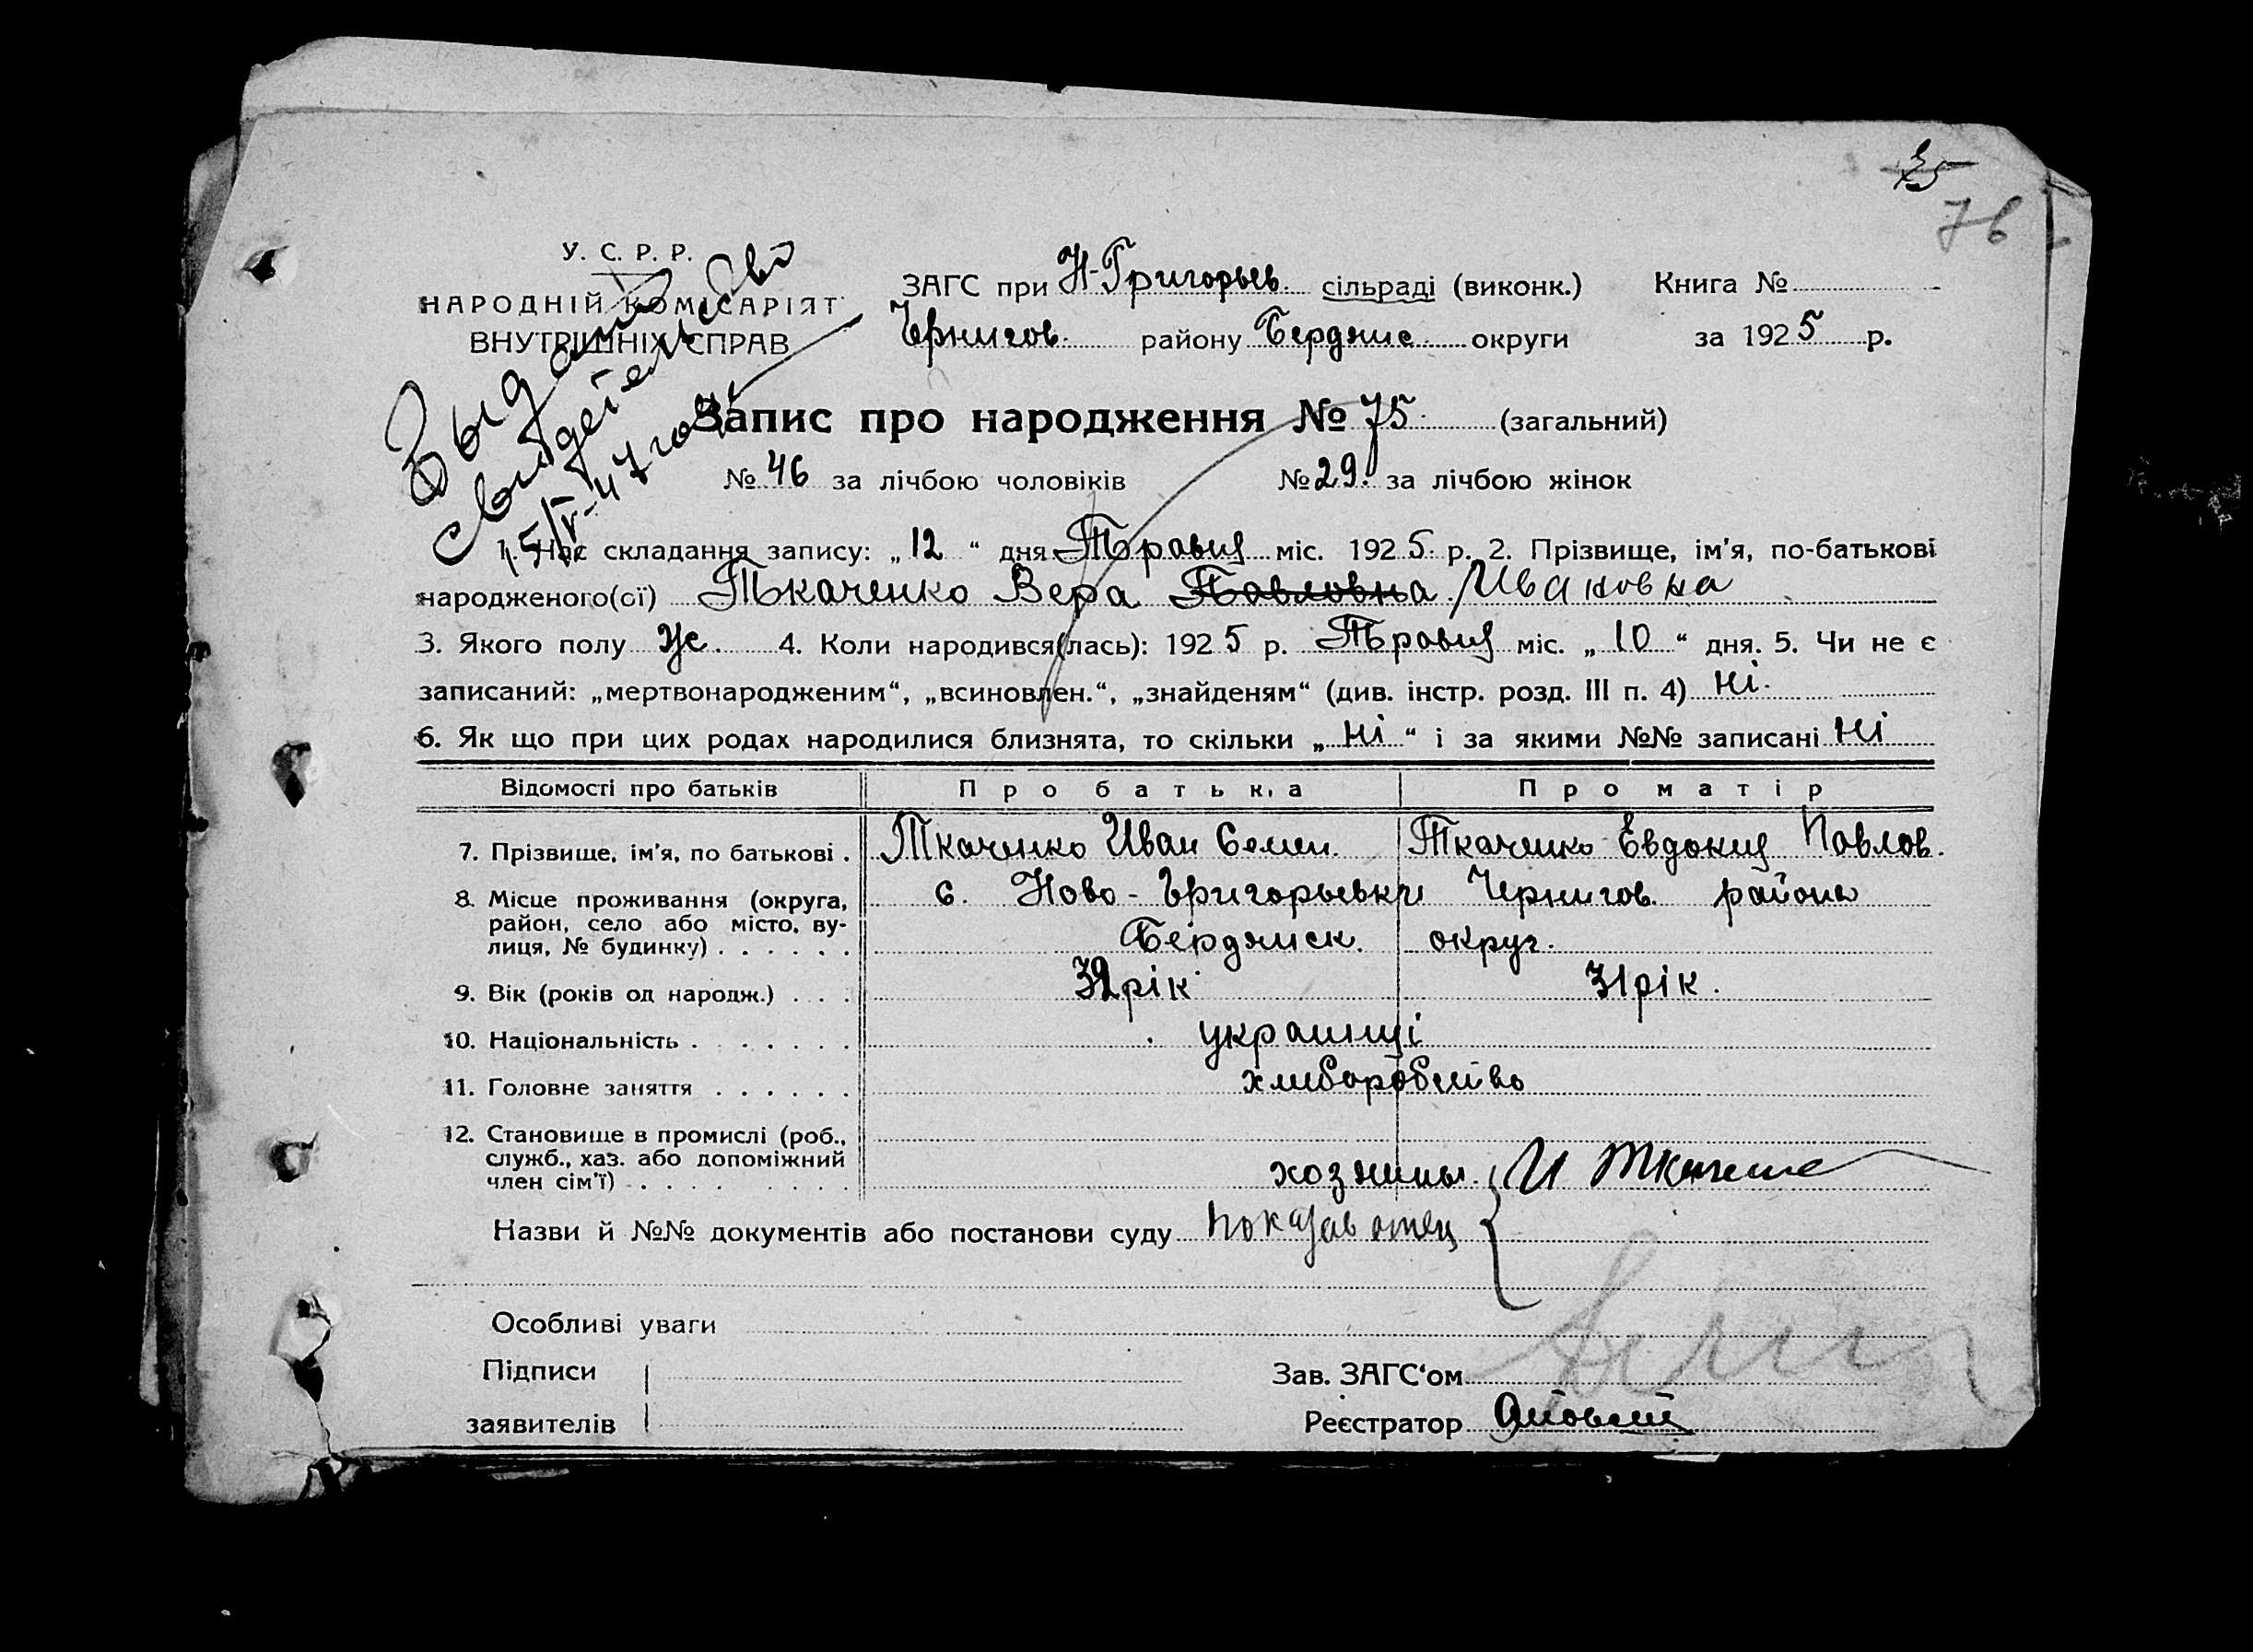 75
76
У. С. Р. Р.
НАРОДНІЙ КОМІСАРІЯТ
ВНУТРІШНІХ СПРАВ
Выдано
свидетельство
15/V-47 года
ЗАГС при Н-Григорьев. сільраді (виконк.) Книга №
Чернигов. району Бердянс. округи за 1925 р.
Запис про народження № 75 (загальний)
№ 46 за лічбою чоловіків № 29. за лічбою жінок
1. Час складання запису: „ 12 “ дня Травня міс. 1925 р. 2. Прізвище, ім'я, по-батькові
народженого(ої) Ткаченко Вера Павловна Ивановна
3. Якого полу Ж. 4. Коли народився(лась): 1925 р. Травня міс. „ 10 “ дня. 5. Чи не є
записаний: „мертвонародженим“, „всиновлен.“, „знайденям“ (див. інстр. розд. III п. 4) Ні.
6. Як що при цих родах народилися близнята, то скільки „ Ні “ і за якими №№ записані Ні
Відомості про батьків Про батька Про матір
7. Прізвище, ім'я, по батькові . Ткаченко Иван Семен. Ткаченко Евдокия Павлов.
8. Місце проживання (округа, район, село або місто, вулиця, № будинку) . . . . . . с. Ново-Григорьевки Чернигов. района
Бердянск. округ.
9. Вік (років од народж.) . . . 32 рік 31 рік.
10. Національність . . . . . . . украинці
11. Головне заняття . . . . . . хлиборобство
12. Становище в промислі (роб., служб., хаз. або допоміжний член сім'ї) . . . . . . . . хозяины. И Ткаченко
Назви й №№ документів або постанови суду показав отец
Особливі уваги
Підписи Зав. ЗАГС‘ом
заявителів Реєстратор